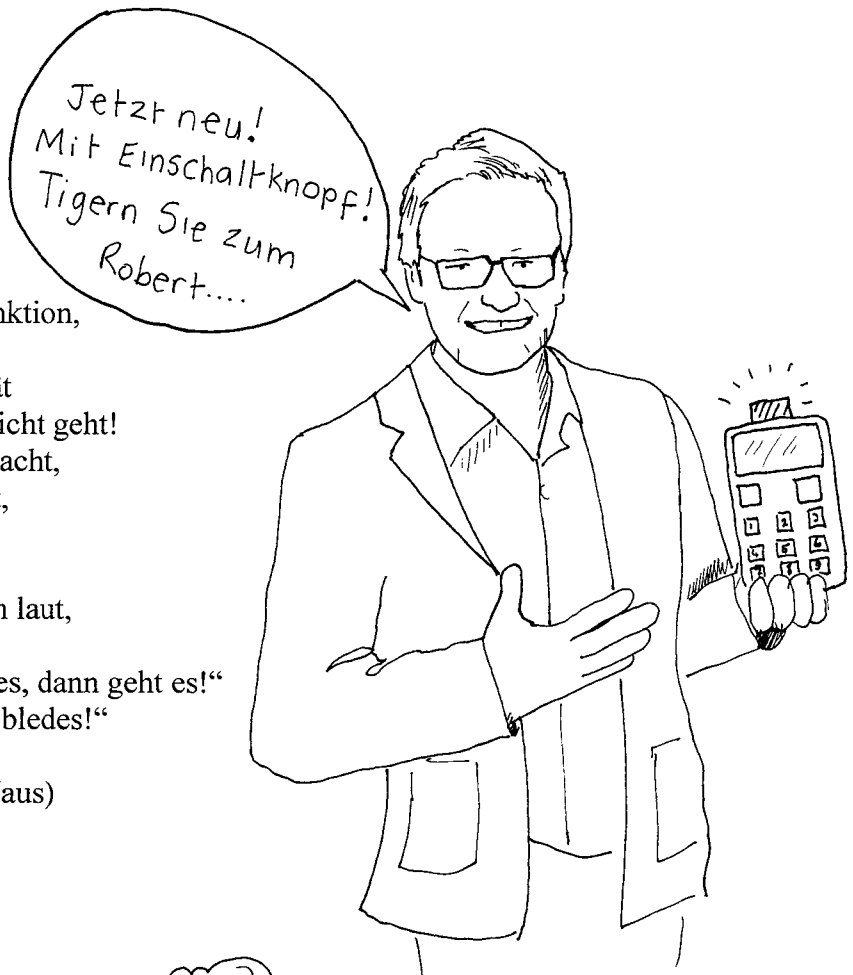 Jetzt neu!
Mit Einschaltknopf!
Tigern Sie zum
Robert....
nktion,
it
icht geht!
acht,
,
n laut,
es, dann geht es!“
bledes!“
aus)
1 2 3
4 5 6
7 8 9